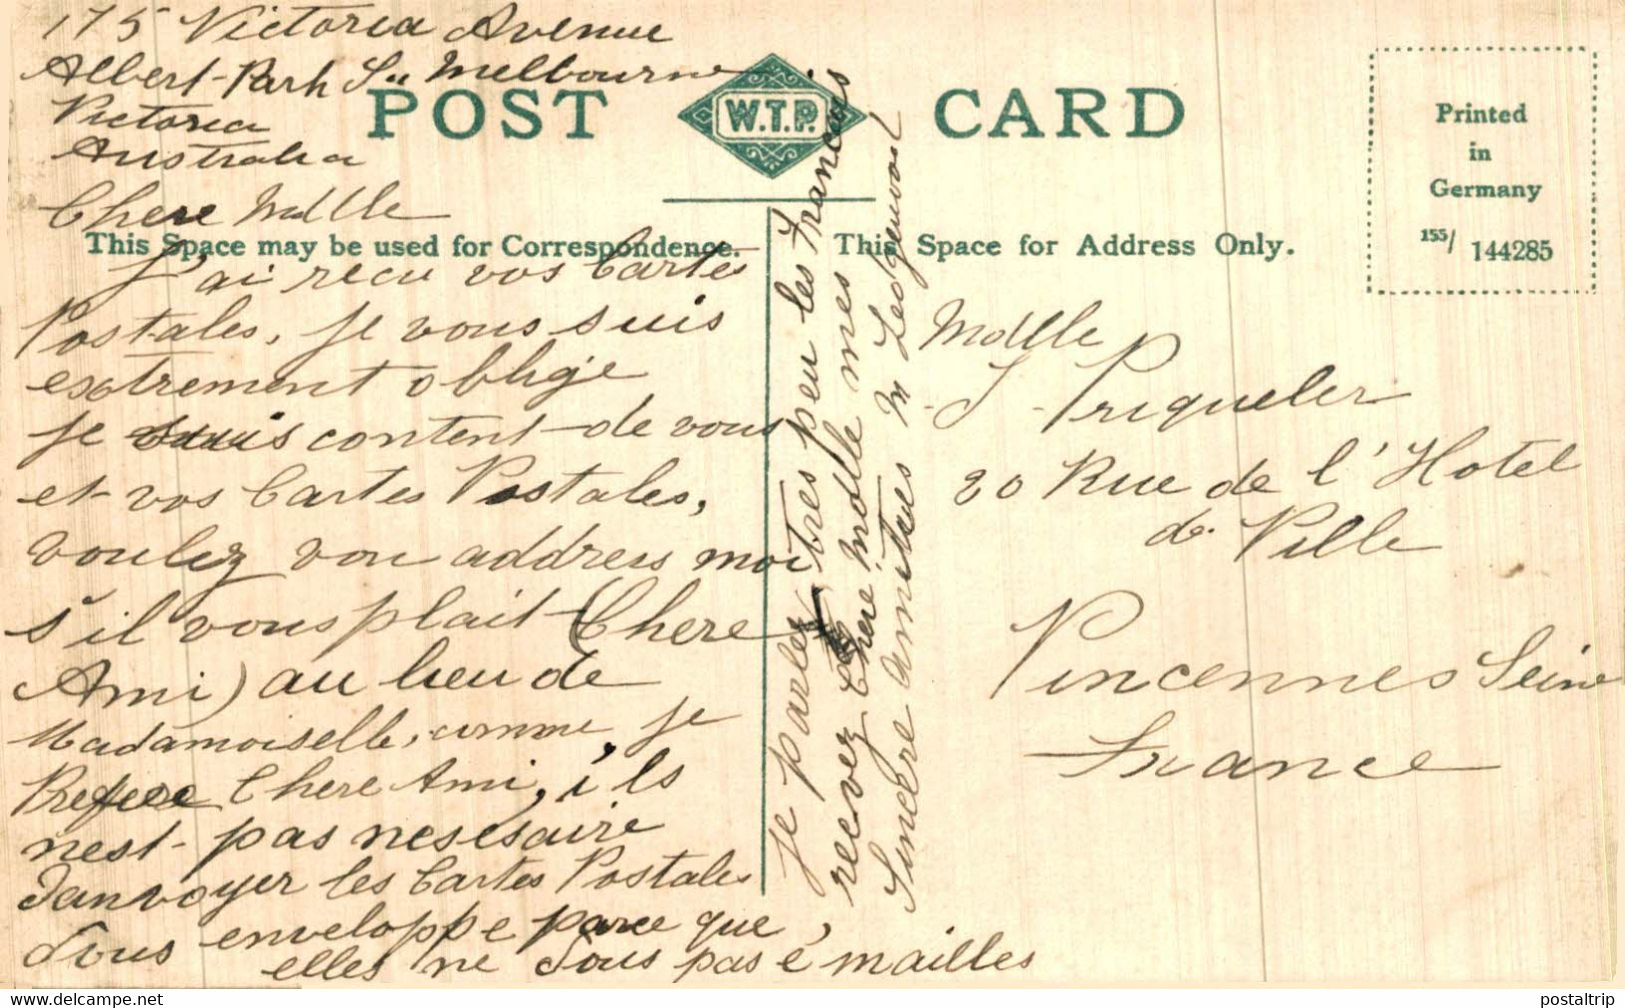 175 Victoria Avenue
Albert-Park So Melbourne
Victoria
Australia
Chere Mdlle
POST W.T.P. CARD
This Space may be used for Correspondence.
J'ai recu vos Cartes
Postales, je vous suis
extrement oblige
je suis content de vous
et vos Cartes Postales,
voulez vou address moi
s'il vous plait (Chere
Ami) au lieu de
Madamoiselle, comme, je
Prefere Chere Ami, i'ls
nest-pas nesessaire
d'anvoyer les Cartes Postales
sous enveloppe parce que,
elles ne sous pas é mailles
je parlez tres peu les Francais
recevez Chere Mdlle mes
Sincere amities M Ledgerwood
This Space for Address Only.
Printed
in
Germany
155/ 144285
Mdlle
J. Priqueler
20 Rue de l'Hotel
de Ville
Vincennes Seine
France
postaltrip
www.delcampe.net